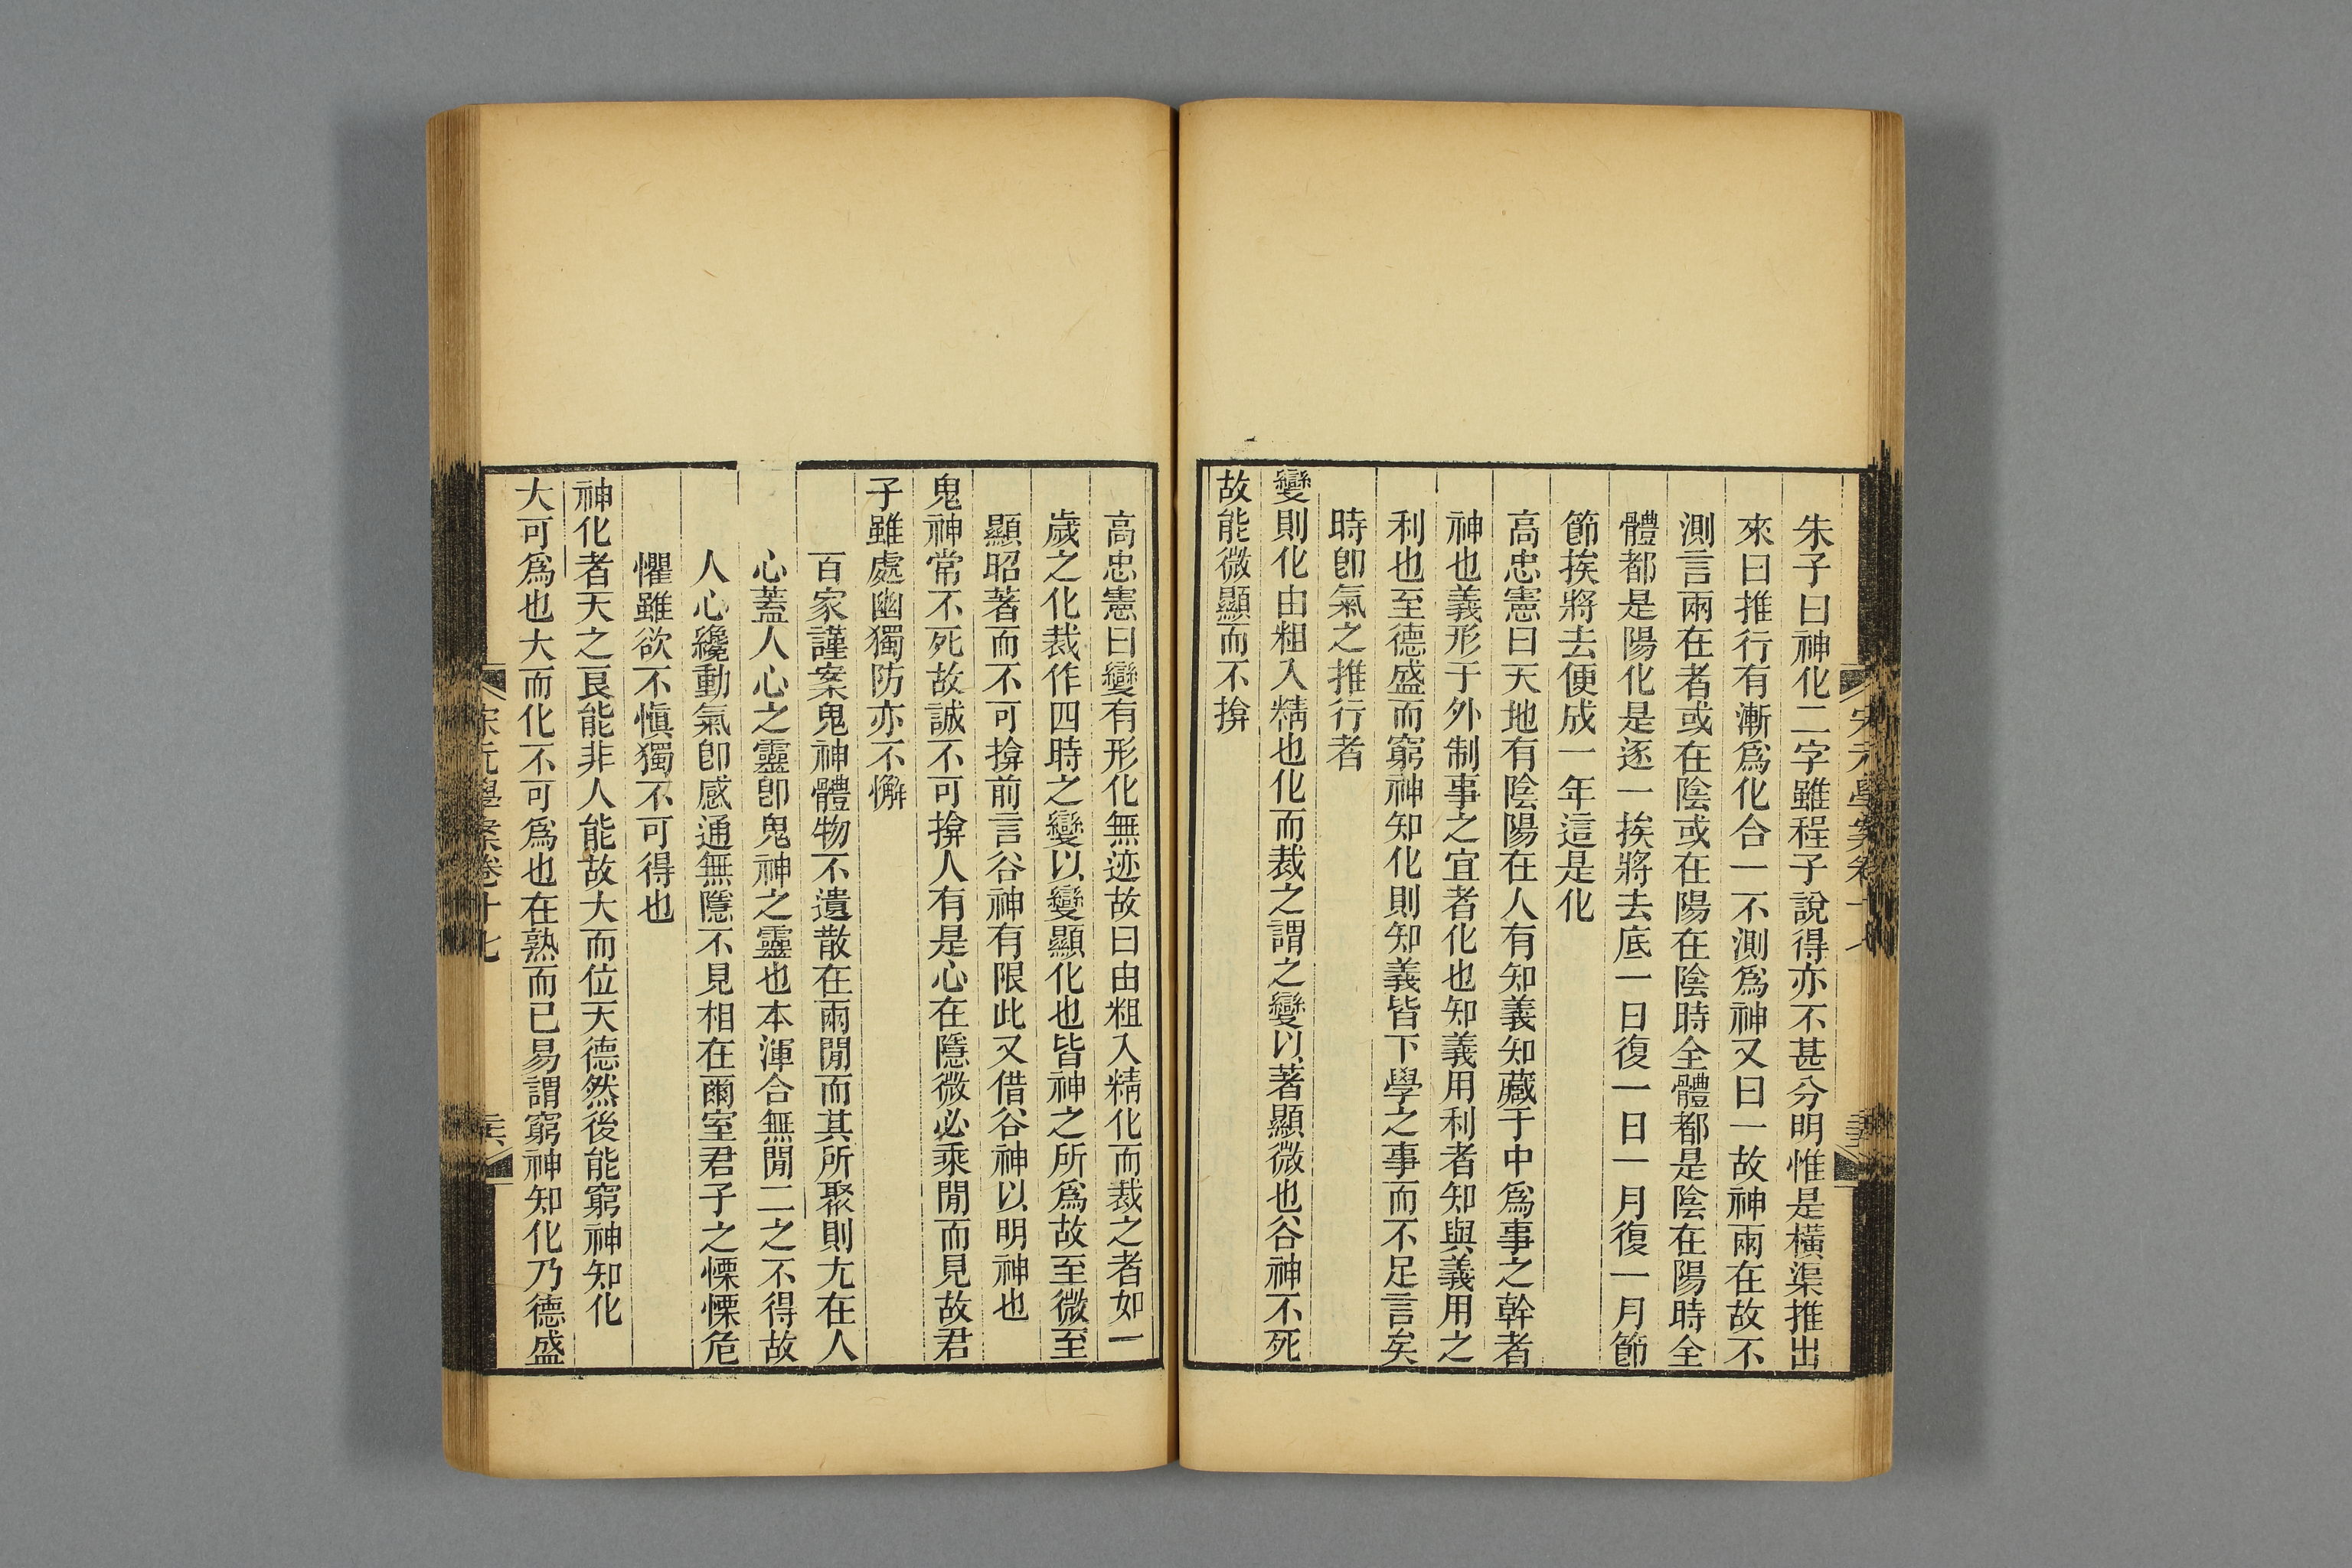 朱子曰神化二字雖程子說得亦不甚分明惟是橫渠推出
來曰推行有漸爲化合一不測爲神又曰一故神兩在故不
測言兩在者或在陰或在陽在陰時全體都是陰在陽時全
體都是陽化是逐一挨將去底一日復一日一月復一月節
節挨將去便成一年這是化
高忠憲曰天地有陰陽在人有知義知藏于中爲事之幹者
神也義形于外制事之宜者化也知義用利者知與義用之
利也至德盛而窮神知化則知義皆下學之事而不足言矣
時卽氣之推行者
變則化由粗入精也化而裁之謂之變以著顯微也谷神不死
故能微顯而不揜
高忠憲曰變有形化無迹故曰由粗入精化而裁之者如一
歲之化裁作四時之變以變顯化也皆神之所爲故至微至
顯昭著而不可揜前言谷神有限此又借谷神以明神也
鬼神常不死故誠不可揜人有是心在隱微必乘閒而見故君
子雖處幽獨防亦不懈
百家謹案鬼神體物不遺散在兩閒而其所聚則尤在人
心蓋人心之靈卽鬼神之靈也本渾合無閒二之不得故
人心纔動氣卽感通無隱不見相在爾室君子之慄慄危
懼雖欲不愼獨不可得也
神化者天之良能非人能故大而位天德然後能窮神知化
大可爲也大而化不可爲也在熟而已易謂窮神知化乃德盛
宋元學案卷十七